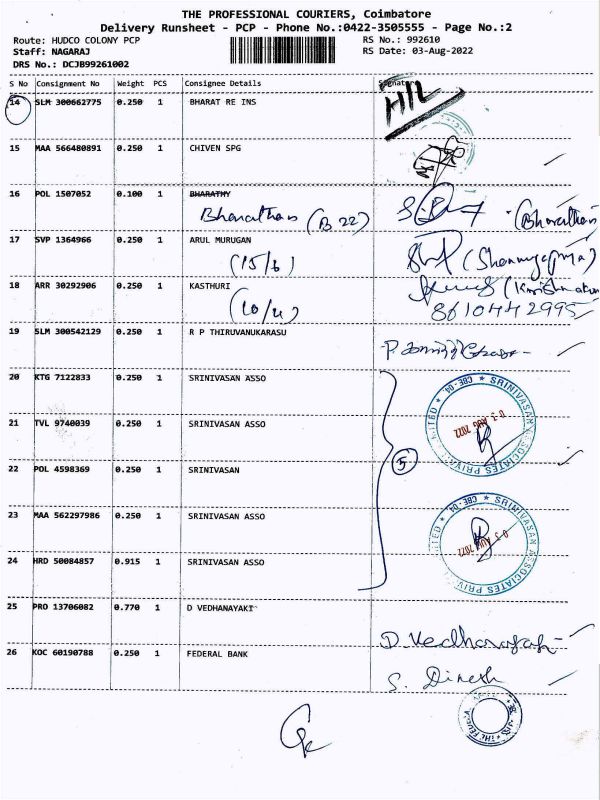 THE PROFESSIONAL COURIERS, Coimbatore
Delivery Runsheet - PCP - Phone No.:0422-3505555 - Page No.:2
Route: HUDCO COLONY PCP RS No.: 992610
Staff: NAGARAJ RS Date: 03-Aug-2022
DRS No.: DCJB99261002
S No Consignment No Weight PCS Consignee Details Signature
H/L
14 SLM 300662775 0.250 1 BHARAT RE INS
15 MAA 566480891 0.250 1 CHIVEN SPG
16 POL 1507052 0.100 1 BHARATHY
Bharathan (B 22) (Bharathan)
17 SVP 1364966 0.250 1 ARUL MURUGAN
(15/6)
18 ARR 30292906 0.250 1 KASTHURI
(10/4) 8610442995
19 SLM 300542129 0.250 1 R P THIRUVANUKARASU
20 KTG 7122833 0.250 1 SRINIVASAN ASSO
21 TVL 9740039 0.250 1 SRINIVASAN ASSO
SRINIVASAN ASSOCIATES PRIVATE LIMITED CBE-04
03 AUG 2022
5
22 POL 4598369 0.250 1 SRINIVASAN
23 MAA 562297986 0.250 1 SRINIVASAN ASSO
SRINIVASAN ASSOCIATES PRIVATE LIMITED CBE-04
03 AUG 2022
24 HRD 50084857 0.915 1 SRINIVASAN ASSO
25 PRO 13706082 0.770 1 D VEDHANAYAKI
D. Vedhanayaki
26 KOC 60190788 0.250 1 FEDERAL BANK
S. Dinesh